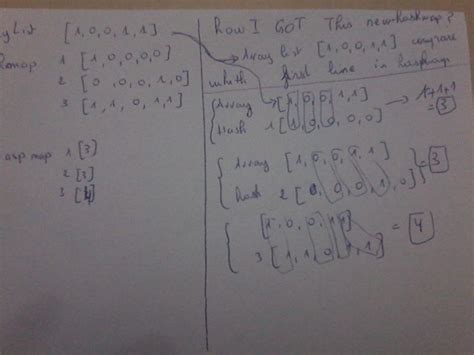 [1,0,0,1,1]
1 [1,0,0,0,0]
2 [0,0,0,1,0]
3 [1,1,0,1,1]
map 1 [3]
2 [3]
3 [4]
How I GOT This new hashmap?
Array list [1,0,0,1,1] compare
whith first line in hashmap
Array [1,0,0,1,1] → 1+1+1
Hash 1 [1,0,0,0,0] = 3
Array [1,0,0,1,1]
hash 2 [0,0,0,1,0] = 3
[1,0,0,1,1]
3 [1,1,0,1,1] = 4